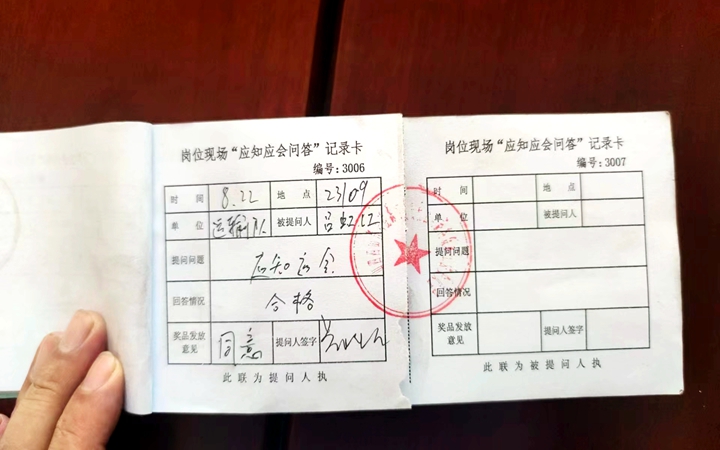 岗位现场“应知应会问答”记录卡
编号:3006
时 间 8.22 地 点 23109
单 位 运输队 被提问人 吕虹江
提问问题 应知应会
回答情况 合格
奖品发放意见 同意 提问人签字
此联为提问人执
岗位现场“应知应会问答”记录卡
编号:3007
时 间 地 点
单 位 被提问人
提问问题
回答情况
奖品发放意见 提问人签字
此联为被提问人执